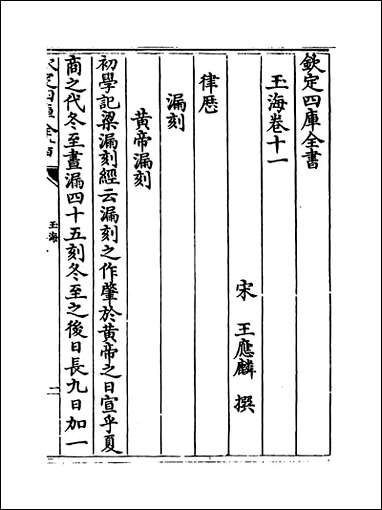 欽定四庫全書
玉海卷十一
宋 王應麟 撰
律厯
漏刻
黃帝漏刻
初學記梁漏刻經云漏刻之作肇於黃帝之日宣乎夏
商之代冬至晝漏四十五刻冬至之後日長九日加一
玉海